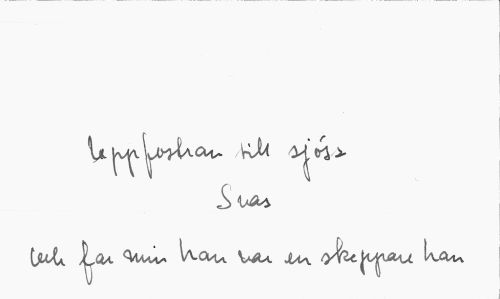 Uppfostran till sjöss
Svas
Och far min han var en skeppare han